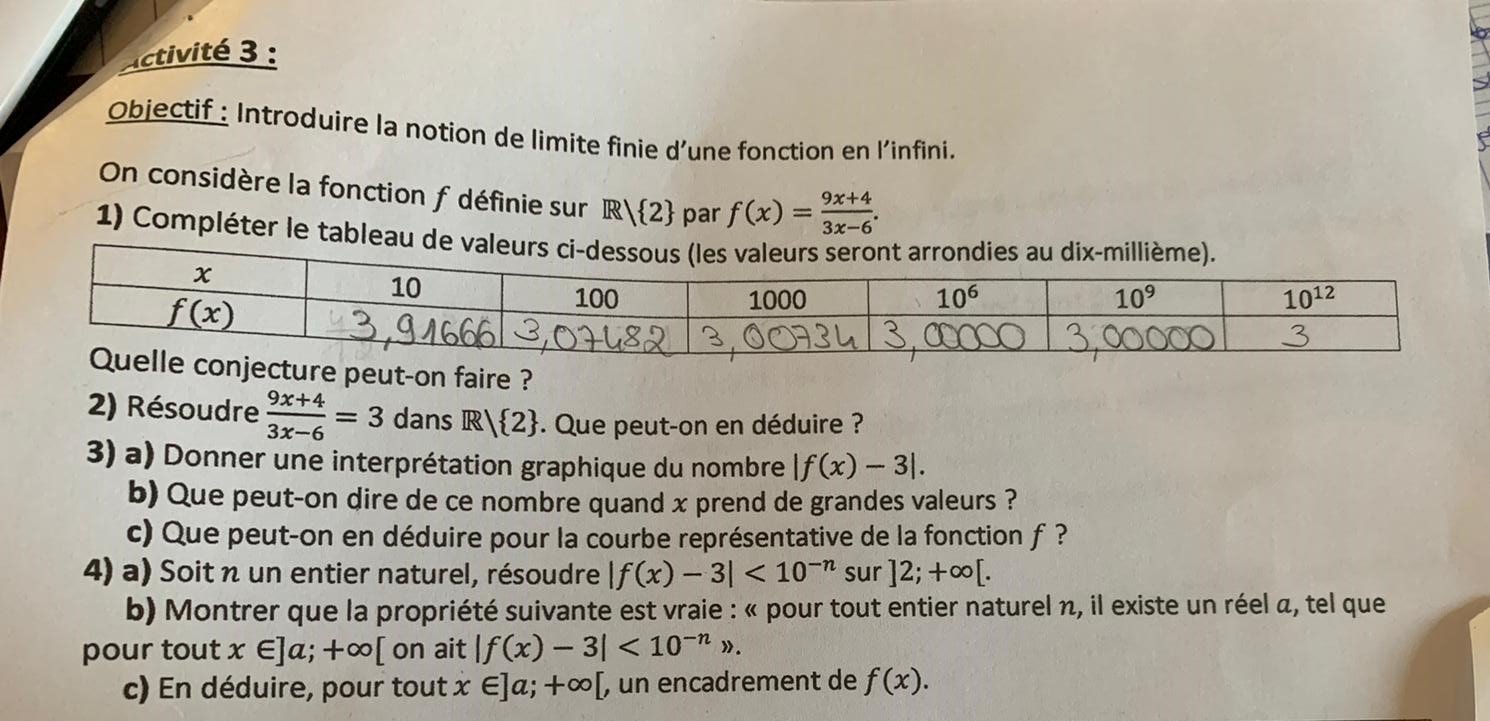 Activité 3 :
Objectif : Introduire la notion de limite finie d'une fonction en l'infini.
On considère la fonction f définie sur ℝ\{2} par f(x) = (9x+4)/(3x−6).
1) Compléter le tableau de valeurs ci-dessous (les valeurs seront arrondies au dix-millième).
x 10 100 1000 10⁶ 10⁹ 10¹²
f(x) 3,91666 3,07482 3,00734 3,00000 3,00000 3
Quelle conjecture peut-on faire ?
2) Résoudre (9x+4)/(3x−6) = 3 dans ℝ\{2}. Que peut-on en déduire ?
3) a) Donner une interprétation graphique du nombre |f(x) − 3|.
b) Que peut-on dire de ce nombre quand x prend de grandes valeurs ?
c) Que peut-on en déduire pour la courbe représentative de la fonction f ?
4) a) Soit n un entier naturel, résoudre |f(x) − 3| < 10⁻ⁿ sur ]2; +∞[.
b) Montrer que la propriété suivante est vraie : « pour tout entier naturel n, il existe un réel a, tel que
pour tout x ∈]a; +∞[ on ait |f(x) − 3| < 10⁻ⁿ ».
c) En déduire, pour tout x ∈]a; +∞[, un encadrement de f(x).